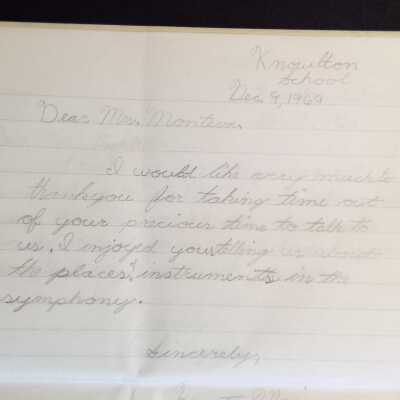 Knowlton
School
Dec. 9, 1969
Dear Mr. Monteux,
I would like very much to
thankyou for taking time out
of your precious time to talk to
us. I injoyed you telling us about
the places & instruments in the
symphony.
Sincerely,